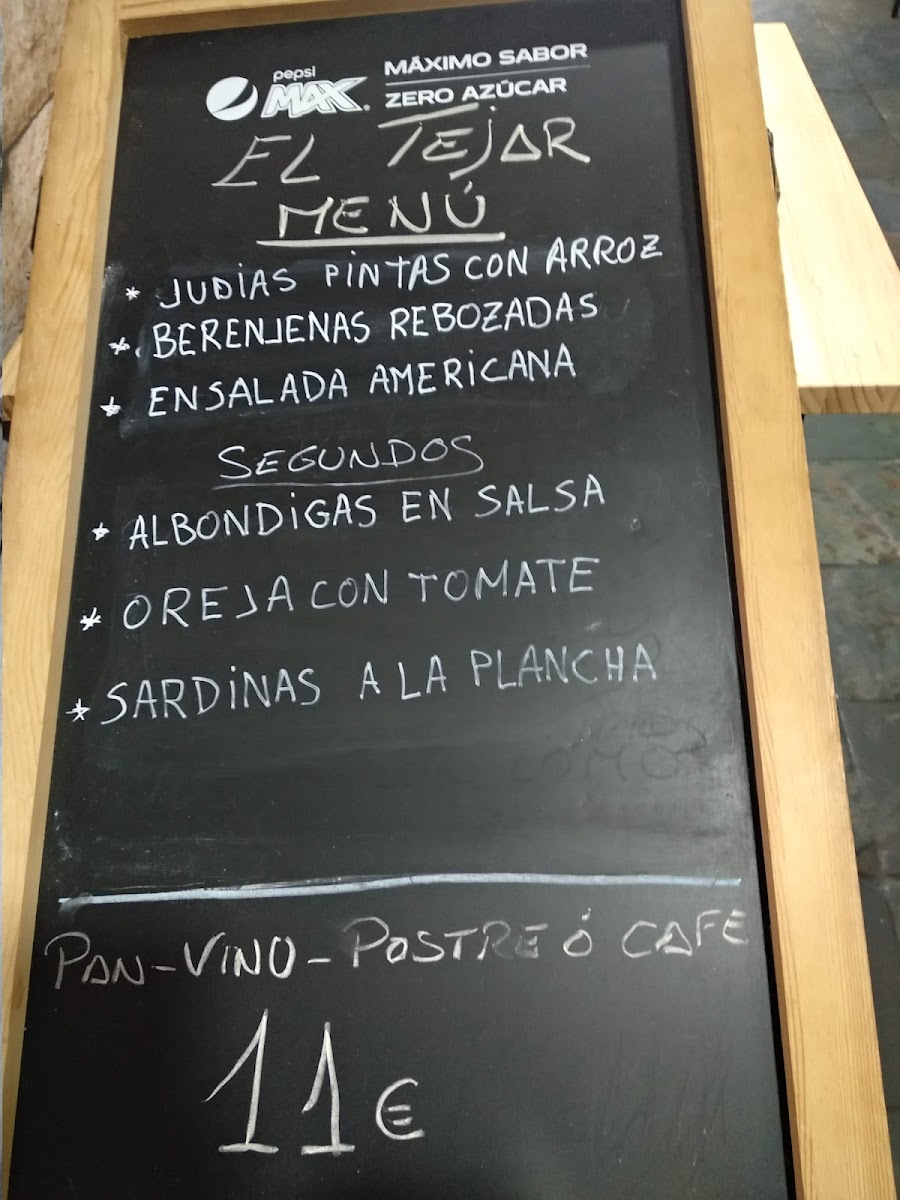 pepsi
MAX®
MÁXIMO SABOR
ZERO AZÚCAR
EL TEJAR
MENÚ
* JUDIAS PINTAS CON ARROZ
* BERENJENAS REBOZADAS
* ENSALADA AMERICANA
SEGUNDOS
* ALBONDIGAS EN SALSA
* OREJA CON TOMATE
* SARDINAS A LA PLANCHA
PAN-VINO-POSTRE Ó CAFE
11€